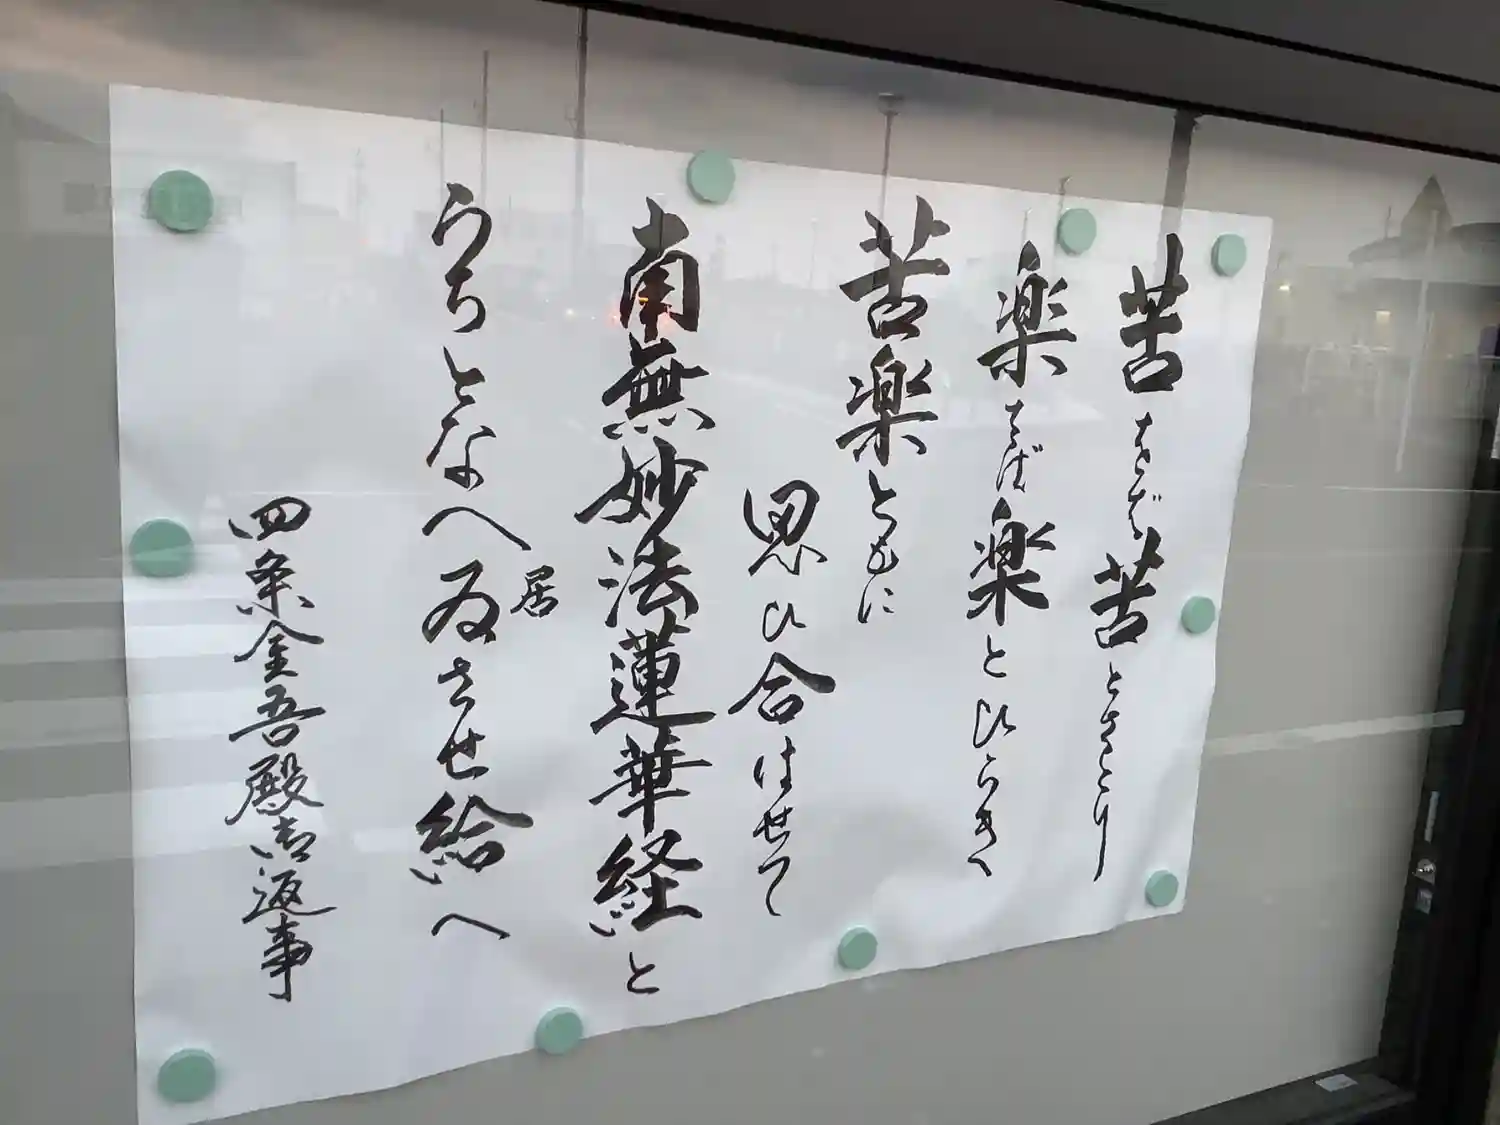 苦をば苦とさとり
楽をば楽とひらき
苦楽ともに
思ひ合はせて
南無妙法蓮華経と
うちとなへゐ居させ給へ
四条金吾殿御返事